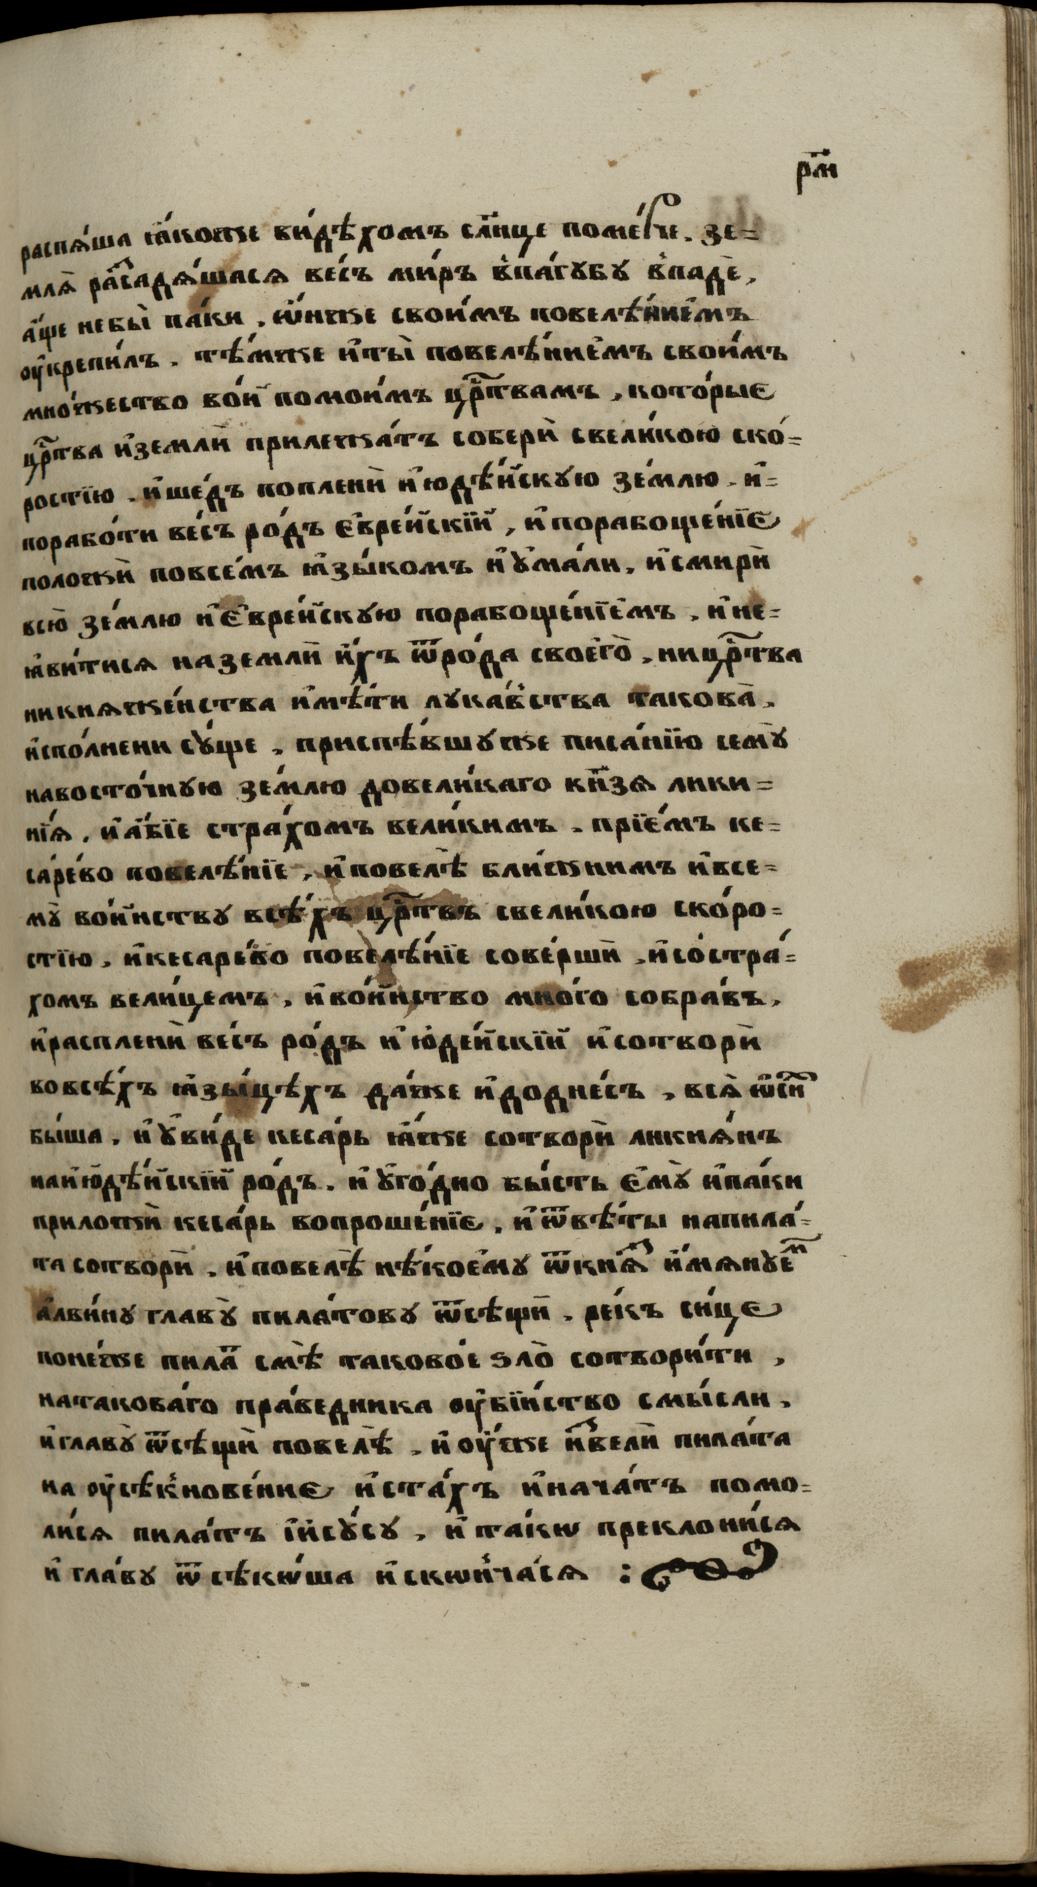 рм҃
распѧ́ша ꙗ҆́коже ви́дѣхомъ сл҃нце поме́рче. зе=
млѧ̀ ра́сⷭ҇адѧ́шасѧ ве́съ ми́ръ в̾па́гꙋбꙋ в̾падѐ,
а҆́ще небы̀ па́ки, ѡ҆́нже свои́мъ повелѣ́нїемъ
ѹ҆крепи́лъ. тѣ́мже и҆ты̀ повелѣ́нїемъ свои́мъ
мно́жество во́й помои́мъ црⷭ҇твамъ, кото́рые
црⷭ҇тва и҆землѝ прилежа́тъ соберѝ свели́кою ско́=
ростїю. и҆ше́дъ поплени̇̀ и҆юдѣ́йскꙋю зе́млю. и҆=
порабо́ти ве́съ ро́дъ є҆вре́йскїй, и҆порабоще́нїе
положѝ повсе́мъ ꙗ҆зы́комъ и҆ꙋ҆ма́ли, и҆смирѝ
всю̀ зе́млю и҆є҆вре́йскꙋю порабоще́нїемъ, и҆не=
ꙗ҆ви́тисѧ наземлѝ и҆́хъ ѿро́да своегѡ̀, ницрⷭ҇тва
никнѧже́нства и҆мѣ́ти лꙋка́вства такова̀,
и҆спо́лнени сꙋ́ще, приспѣ́вшꙋже писа́нїю семꙋ̀
навосто́чнꙋю зе́млю довели́каго кн҃зѧ лики=
нїѧ, и҆а҆́бїе стра́хомъ вели́кимъ. прїе́мъ ке=
са́рево повелѣ́нїе, и҆повелѣ̀ бли́жнимъ и҆все=
мꙋ̀ во́инствꙋ всѣ́хъ црⷭ҇твъ свели́кою ско́ро=
стїю, и҆кесаре́во повелѣ́нїе соверши̇̀, и҆состра́=
хомъ вели́цемъ, и҆во́инство мно́го собра́въ,
и҆расплени̇̀ ве́съ ро́дъ и҆ю҆де́йскїй и҆сотворѝ
вовсѣ́хъ ꙗ҆зы́цѣхъ да́же и҆додне́съ, всѧ̀ ѡ҆сїѝ
бы́ша, и҆ꙋ҆ви́де кеса́рь ꙗ҆́же сотворѝ ликиѧ́нъ
наи҆ю҆дѣ́йскїй ро́дъ. и҆ꙋ҆го́дно бы́сть є҆мꙋ̀ и҆па́ки
приложѝ кеса́рь вопроше́нїе, и҆ѿвѣ́ты напила́=
та сотворѝ, и҆повелѣ̀ нѣ́коемꙋ ѿкнѧⷥ҇ и҆́мѧнꙋеⷨ
а҆лви́нꙋ главꙋ̀ пила́товꙋ ѿсѣщѝ. ре́къ си́це
поне́же пилаⷮ смѣ̀ таково́е ѕло̀ сотвори́ти,
натакова́го пра́ведника ѹ҆бїи́ство смы́сли,
и҆главꙋ̀ ѿсѣщѝ повелѣ̀. и҆ѹ҆́же и҆звелѝ пила́та
на ѹ҆сѣкнове́ние и҆ста́хъ и҆нача́тъ помо=
ли́сѧ пила́тъ і҆и҆сꙋ́сꙋ, и҆ та́кѡ преклони́сѧ
и҆ гла́вꙋ ѿсѣкѡ́ша и҆скѡнча́сѧ :